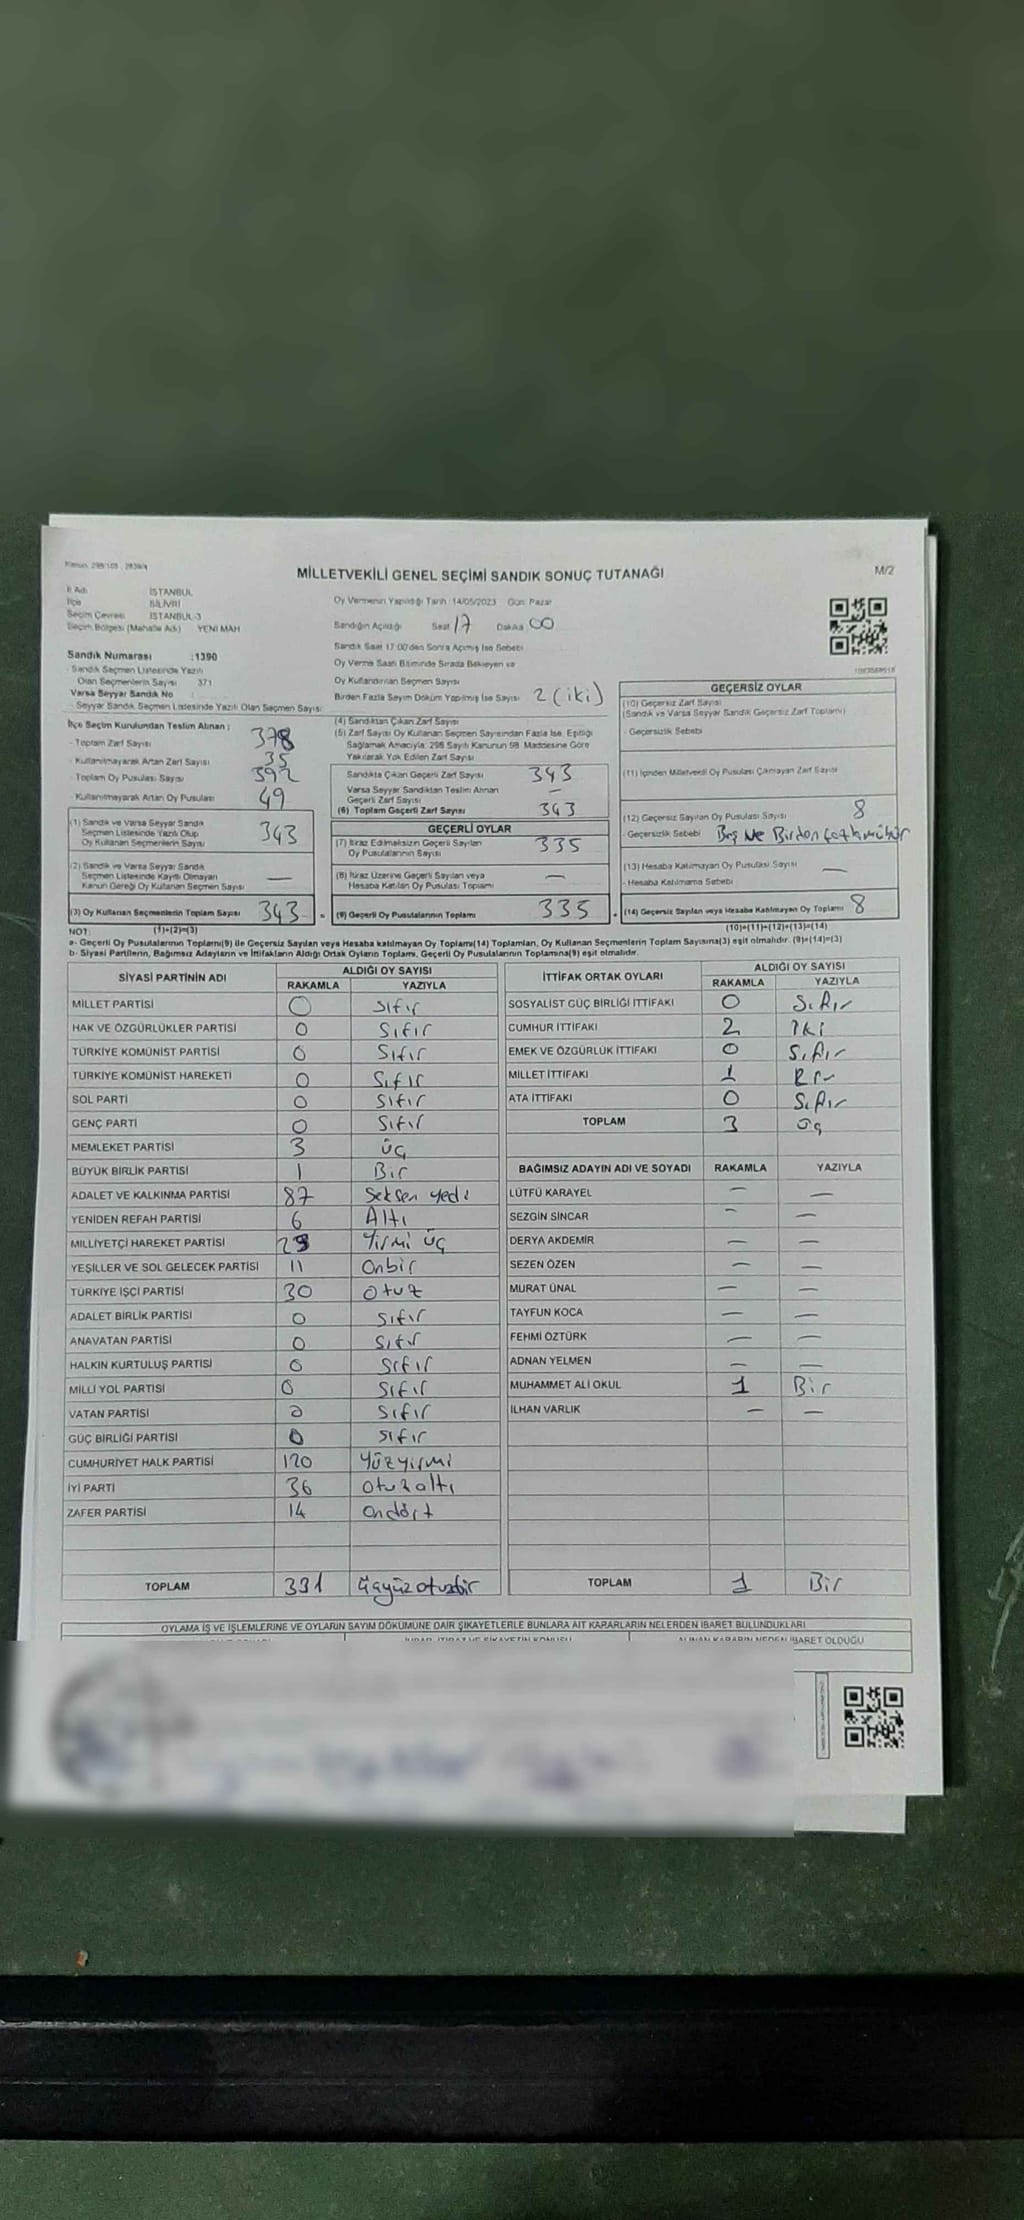 Kanun: 298/105 , 2839/4
MİLLETVEKİLİ GENEL SEÇİMİ SANDIK SONUÇ TUTANAĞI
M/2
İl Adı İSTANBUL
İlçe SİLİVRİ
Seçim Çevresi İSTANBUL-3
Seçim Bölgesi (Mahalle Adı) YENİ MAH
Sandık Numarası :1390
- Sandık Seçmen Listesinde Yazılı
Olan Seçmenlerin Sayısı 371
Varsa Seyyar Sandık No
- Seyyar Sandık Seçmen Listesinde Yazılı Olan Seçmen Sayısı:
Oy Vermenin Yapıldığı Tarih: 14/05/2023 Gün: Pazar
Sandığın Açıldığı Saat 17 Dakika 00
Sandık Saat 17:00'den Sonra Açılmış İse Sebebi
Oy Verme Saati Bitiminde Sırada Bekleyen ve
Oy Kullandırılan Seçmen Sayısı
Birden Fazla Sayım Döküm Yapılmış İse Sayısı 2 (iki)
İlçe Seçim Kurulundan Teslim Alınan :
- Toplam Zarf Sayısı 378
- Kullanılmayarak Artan Zarf Sayısı 35
- Toplam Oy Pusulası Sayısı 392
- Kullanılmayarak Artan Oy Pusulası 49
(1) Sandık ve Varsa Seyyar Sandık
Seçmen Listesinde Yazılı Olup
Oy Kullanan Seçmenlerin Sayısı 343
(2) Sandık ve Varsa Seyyar Sandık
Seçmen Listesinde Kayıtlı Olmayan
Kanun Gereği Oy Kullanan Seçmen Sayısı —
(3) Oy Kullanan Seçmenlerin Toplam Sayısı 343 =
(4) Sandıktan Çıkan Zarf Sayısı
(5) Zarf Sayısı Oy Kullanan Seçmen Sayısından Fazla İse, Eşitliği
Sağlamak Amacıyla; 298 Sayılı Kanunun 98. Maddesine Göre
Yakılarak Yok Edilen Zarf Sayısı
Sandıkta Çıkan Geçerli Zarf Sayısı 343
Varsa Seyyar Sandıktan Teslim Alınan
Geçerli Zarf Sayısı —
(6) Toplam Geçerli Zarf Sayısı 343
GEÇERLİ OYLAR
(7) İtiraz Edilmeksizin Geçerli Sayılan
Oy Pusulalarının Sayısı 335
(8) İtiraz Üzerine Geçerli Sayılan veya
Hesaba Katılan Oy Pusulası Toplamı —
(9) Geçerli Oy Pusulalarının Toplamı 335 +
GEÇERSİZ OYLAR
(10) Geçersiz Zarf Sayısı
(Sandık ve Varsa Seyyar Sandık Geçersiz Zarf Toplamı)
- Geçersizlik Sebebi
(11) İçinden Milletvekili Oy Pusulası Çıkmayan Zarf Sayısı
(12) Geçersiz Sayılan Oy Pusulası Sayısı 8
- Geçersizlik Sebebi Boş Ve Birden fazla mühür
(13) Hesaba Katılmayan Oy Pusulası Sayısı —
- Hesaba Katılmama Sebebi
(14) Geçersiz Sayılan veya Hesaba Katılmayan Oy Toplamı 8
NOT: (1)+(2)=(3) (10)+(11)+(12)+(13)=(14)
a- Geçerli Oy Pusulalarının Toplamı(9) ile Geçersiz Sayılan veya Hesaba katılmayan Oy Toplamı(14) Toplamları, Oy Kullanan Seçmenlerin Toplam Sayısına(3) eşit olmalıdır. (9)+(14)=(3)
b- Siyasi Partilerin, Bağımsız Adayların ve İttifakların Aldığı Ortak Oyların Toplamı, Geçerli Oy Pusulalarının Toplamına(9) eşit olmalıdır.
SİYASİ PARTİNİN ADI ALDIĞI OY SAYISI
RAKAMLA YAZIYLA
MİLLET PARTİSİ 0 Sıfır
HAK VE ÖZGÜRLÜKLER PARTİSİ 0 Sıfır
TÜRKİYE KOMÜNİST PARTİSİ 0 Sıfır
TÜRKİYE KOMÜNİST HAREKETİ 0 Sıfır
SOL PARTİ 0 Sıfır
GENÇ PARTİ 0 Sıfır
MEMLEKET PARTİSİ 3 üç
BÜYÜK BİRLİK PARTİSİ 1 Bir
ADALET VE KALKINMA PARTİSİ 87 Seksen yedi
YENİDEN REFAH PARTİSİ 6 Altı
MİLLİYETÇİ HAREKET PARTİSİ 23 Yirmi üç
YEŞİLLER VE SOL GELECEK PARTİSİ 11 Onbir
TÜRKİYE İŞÇİ PARTİSİ 30 Otuz
ADALET BİRLİK PARTİSİ 0 Sıfır
ANAVATAN PARTİSİ 0 Sıfır
HALKIN KURTULUŞ PARTİSİ 0 Sıfır
MİLLİ YOL PARTİSİ 0 Sıfır
VATAN PARTİSİ 0 Sıfır
GÜÇ BİRLİĞİ PARTİSİ 0 Sıfır
CUMHURİYET HALK PARTİSİ 120 Yüzyirmi
İYİ PARTİ 36 Otuzaltı
ZAFER PARTİSİ 14 Ondört
TOPLAM 331 Üçyüzotuzbir
İTTİFAK ORTAK OYLARI ALDIĞI OY SAYISI
RAKAMLA YAZIYLA
SOSYALİST GÜÇ BİRLİĞİ İTTİFAKI 0 Sıfır
CUMHUR İTTİFAKI 2 İki
EMEK VE ÖZGÜRLÜK İTTİFAKI 0 Sıfır
MİLLET İTTİFAKI 1 Bir
ATA İTTİFAKI 0 Sıfır
TOPLAM 3 üç
BAĞIMSIZ ADAYIN ADI VE SOYADI RAKAMLA YAZIYLA
LÜTFÜ KARAYEL — —
SEZGİN SİNCAR — —
DERYA AKDEMİR — —
SEZEN ÖZEN — —
MURAT ÜNAL — —
TAYFUN KOCA — —
FEHMİ ÖZTÜRK — —
ADNAN YELMEN — —
MUHAMMET ALİ OKUL 1 Bir
İLHAN VARLIK — —
TOPLAM 1 Bir
OYLAMA İŞ VE İŞLEMLERİNE VE OYLARIN SAYIM DÖKÜMÜNE DAİR ŞİKAYETLERLE BUNLARA AİT KARARLARIN NELERDEN İBARET BULUNDUKLARI
İHBAR, İTİRAZ VE ŞİKAYETİN KONUSU ALINAN KARARIN NEDEN İBARET OLDUĞU